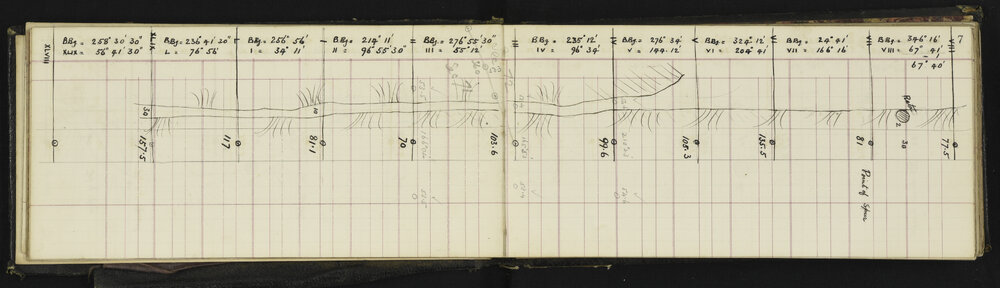 XLVIII
BBg = 258° 30' 30"
XLIX = 56° 41' 30"
XLIX
BBg = 236° 41' 30"
L = 76° 56'
L
BBg = 256° 56'
I = 34° 11'
I
BBg = 214° 11'
II = 96° 55' 30"
II
BBg = 276° 55' 30"
III = 55° 12'
III
BBg = 235° 12'
IV = 96° 34'
IV
BBg = 276° 34'
V = 144° 12'
V
BBg = 324° 12'
VI = 204° 41'
VI
BBg = 24° 41'
VII = 166° 16'
VII
BBg = 346° 16'
VIII = 67° 41'
67° 40'
VIII
7
30
10
Rata
2
30
157.5
117
81.1
70
103.6
99.6
105.3
135.5
81
77.5
Point of Spur